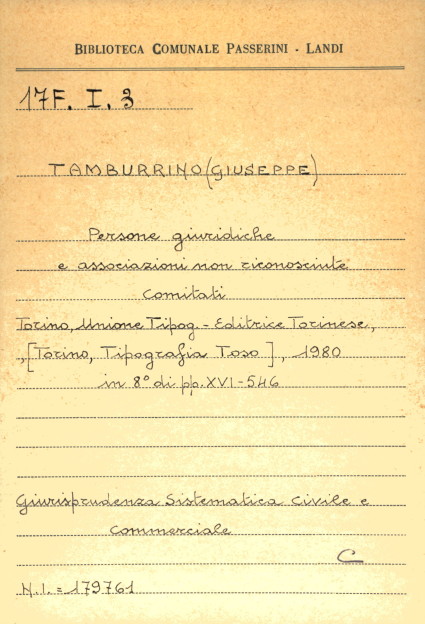 BIBLIOTECA COMUNALE PASSERINI - LANDI
17F. I. 3
TAMBURRINO (GIUSEPPE)
Persone giuridiche
e associazioni non riconosciute
Comitati
Torino, Unione Tipog.- Editrice Torinese,
,[Torino, Tipografia Toso], 1980
in 8° di pp. XVI-546
Giurisprudenza Sistematica Civile e
Commerciale
C
N.I. = 179761